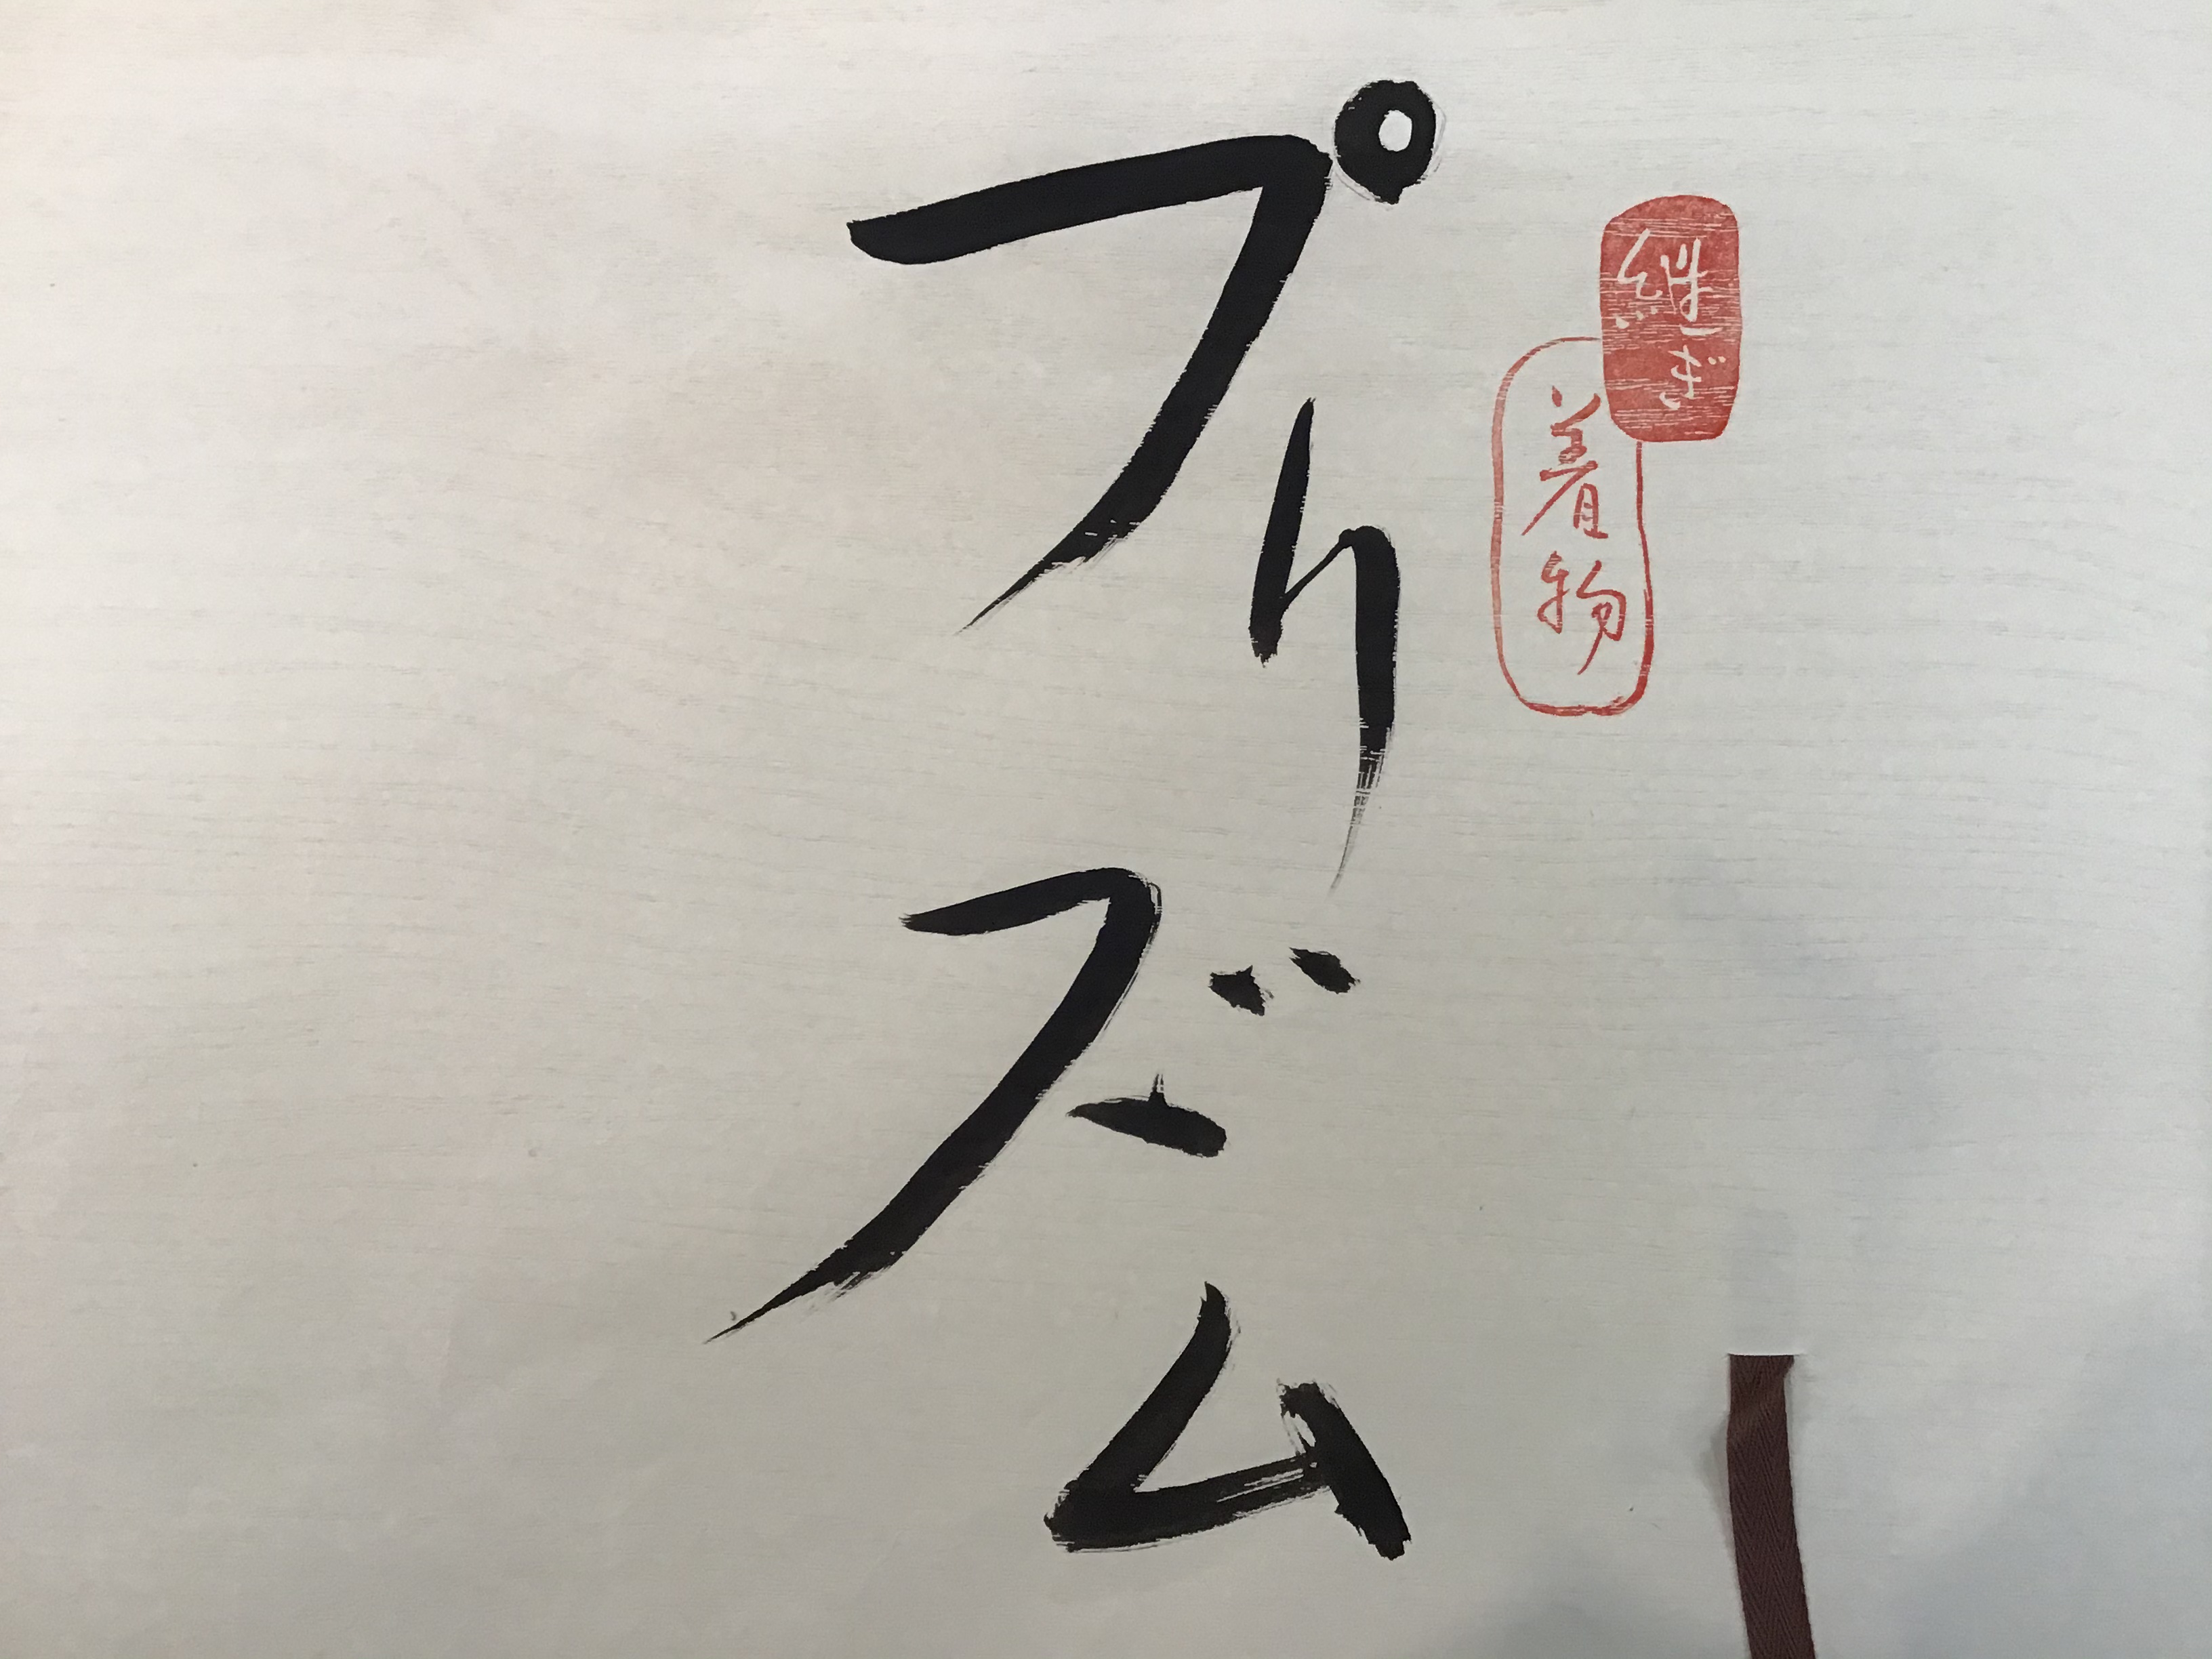 継ぎ
着物
プリズム